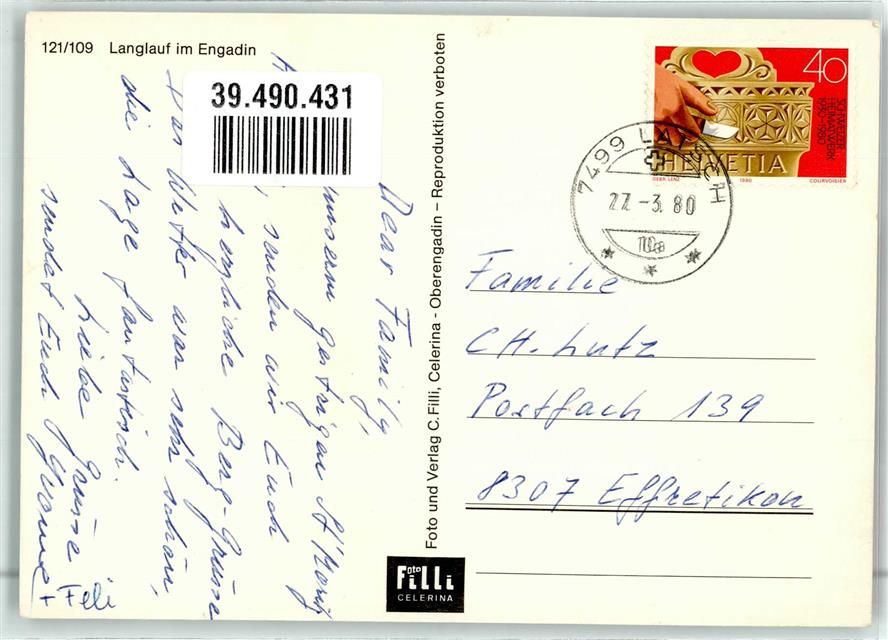 121/109 Langlauf im Engadin
39.490.431
Dear Family,
unserm gestrigen St. Moritz
senden wir Euch
herzliche Berg-Grüsse
Das Wetter war sehr schön,
die Lage fantastisch.
Liebe Grüsse
sendet Euch Yvonne
+ Feli
Foto und Verlag C. Filli, Celerina - Oberengadin – Reproduktion verboten
Foto
Filli
CELERINA
40
SCHWEIZER
HEIMATWERK
1930-1980
HELVETIA
GEBR. LENZ 1980 COURVOISIER
7499
27.-3.80
Familie
CH. Lutz
Postfach 139
8307 Effretikon